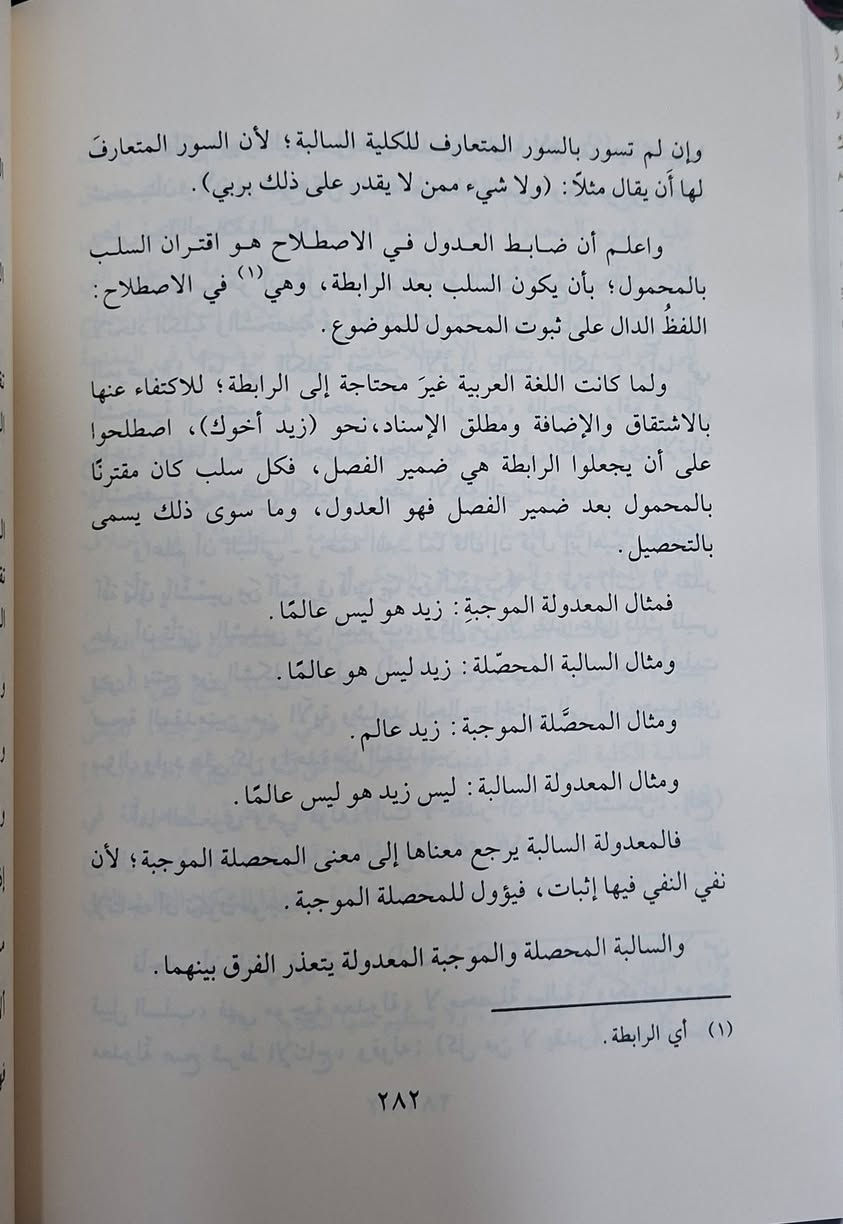 وإن لم تسور بالسور المتعارف للكلية السالبة؛ لأن السور المتعارفَ
لها أَن يقال مثلاً: (ولا شيء ممن لا يقدر على ذلك بربي).
واعلم أن ضابط العدول في الاصطلاح هو اقتران السلب
بالمحمول؛ بأن يكون السلب بعد الرابطة، وهي(١) في الاصطلاح:
اللفظُ الدال على ثبوت المحمول للموضوع.
ولما كانت اللغة العربية غيرَ محتاجة إلى الرابطة؛ للاكتفاء عنها
بالاشتقاق والإضافة ومطلق الإسناد،نحو (زيد أخوك)، اصطلحوا
على أن يجعلوا الرابطة هي ضمير الفصل، فكل سلب كان مقترنًا
بالمحمول بعد ضمير الفصل فهو العدول، وما سوى ذلك يسمى
بالتحصيل.
فمثال المعدولة الموجبةِ: زيد هو ليس عالمًا.
ومثال السالبة المحصّلة: زيد ليس هو عالمًا.
ومثال المحصَّلة الموجبة: زيد عالم.
ومثال المعدولة السالبة: ليس زيد هو ليس عالمًا.
فالمعدولة السالبة يرجع معناها إلى معنى المحصلة الموجبة؛ لأن
نفي النفي فيها إثبات، فيؤول للمحصلة الموجبة.
والسالبة المحصلة والموجبة المعدولة يتعذر الفرق بينهما.
(١) أي الرابطة.
٢٨٢